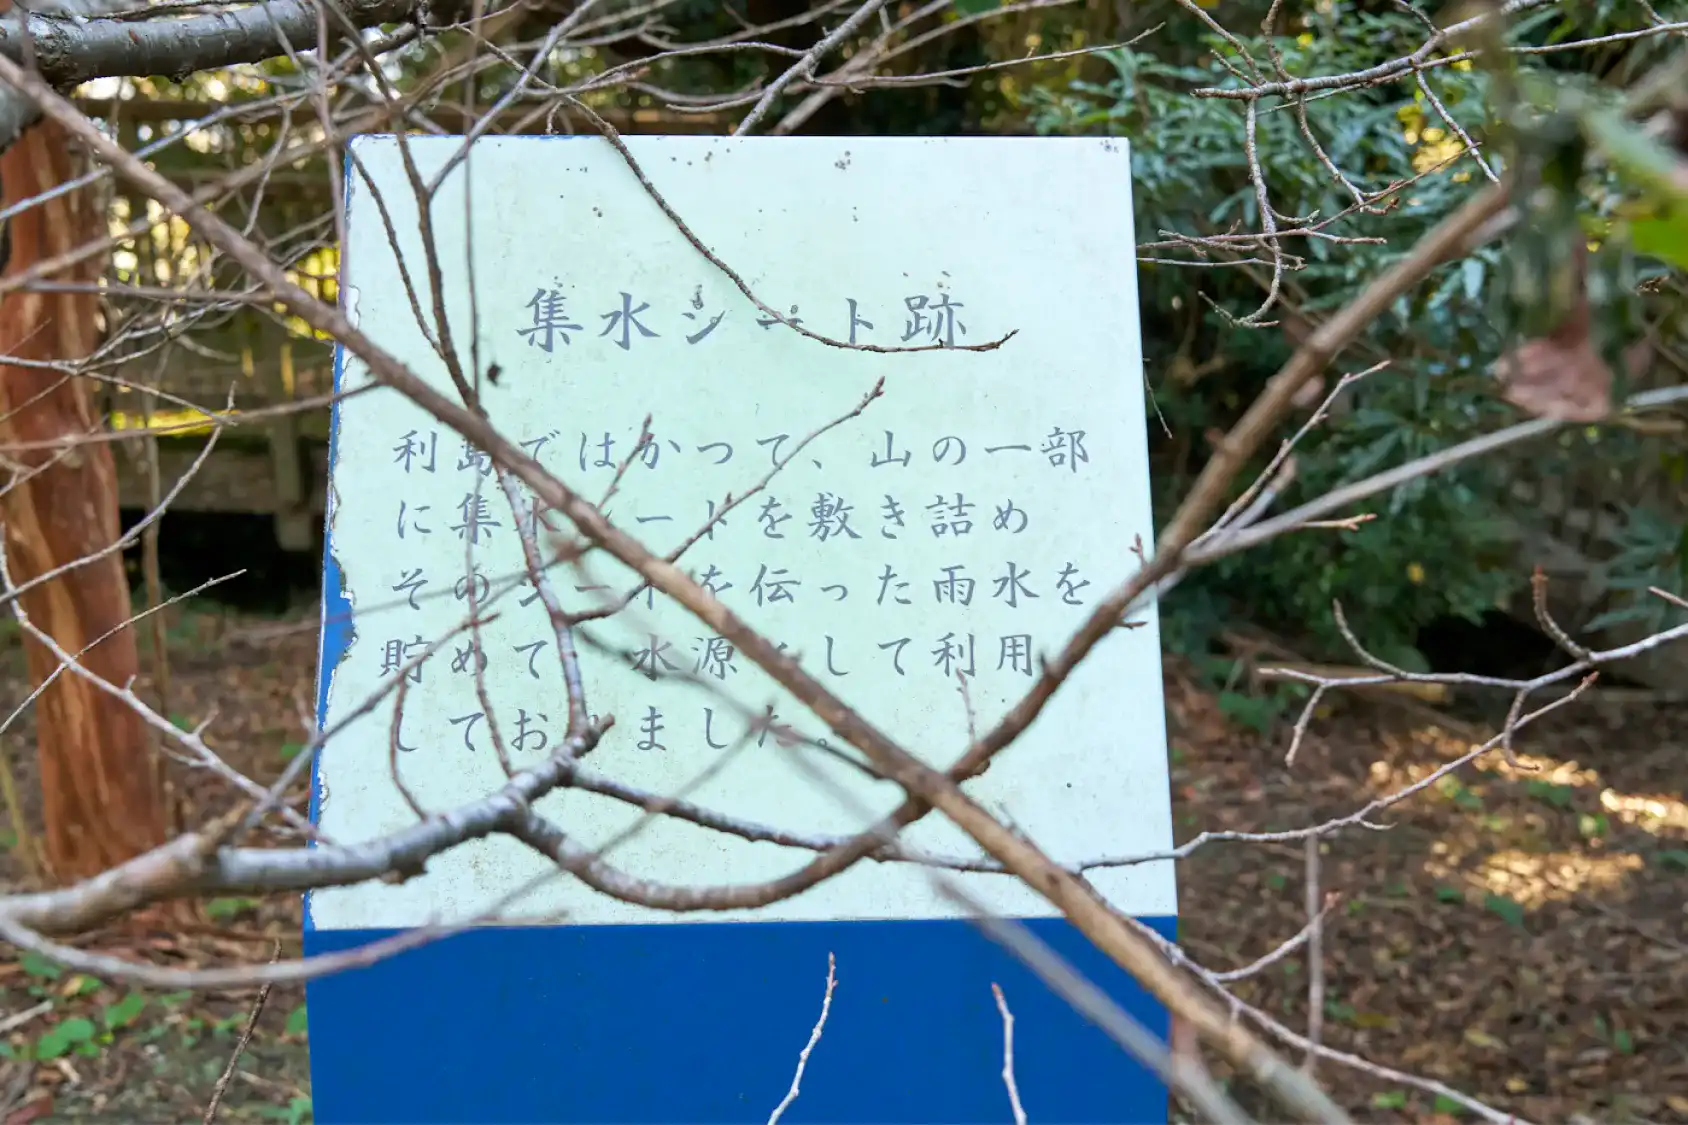 集水シート跡
利島ではかつて、山の一部
に集水シートを敷き詰め
そのシートを伝った雨水を
貯めて、水源として利用
しておりました。